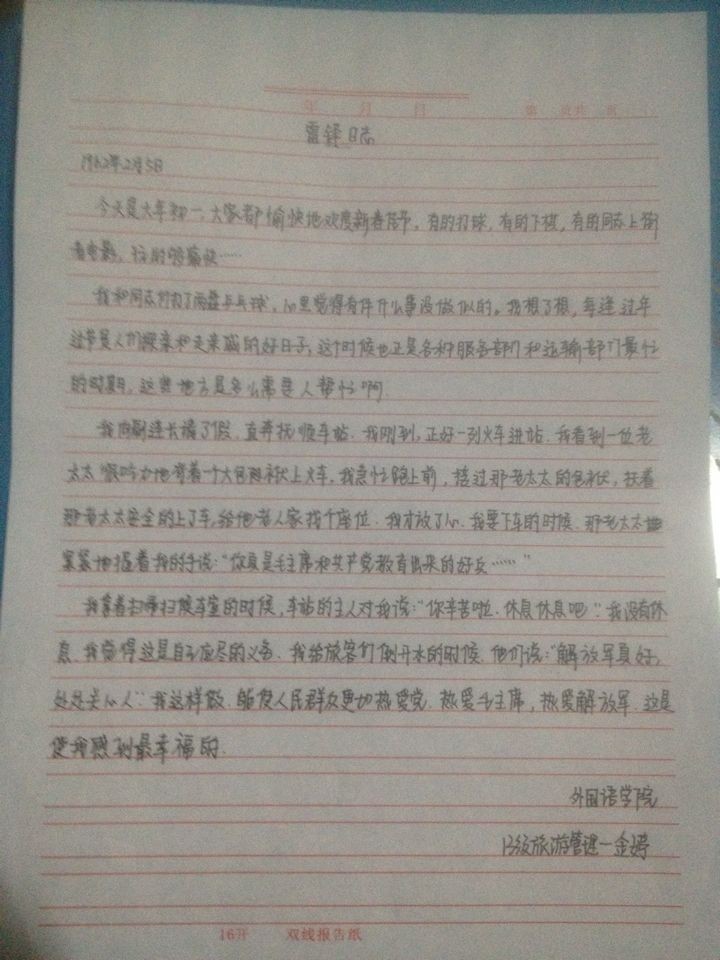 年 月 日 第 页共 页
雷锋日志
1962年2月5日
今天是大年初一,大家都愉快地欢度新春佳节,有的打球,有的下棋,有的同志上街
看电影,玩的够痛快……
我和同志们打了两盘乒乓球,心里觉得有件什么事没做似的,我想了想,每逢过年
过节是人们探亲和走亲戚的好日子,这个时候也正是各种服务部门和运输部门最忙
的时期,这些地方是多么需要人帮忙啊.
我向副连长请了假,直奔抚顺车站.我刚到,正好一列火车进站.我看到一位老
太太很吃力地背着一个大包袱上火车,我急忙跑上前,接过那老太太的包袱,扶着
那老太太安全的上了车,给他老人家找个座位.我才放了心.我要下车的时候,那老太太
紧紧地握着我的手说:“你真是毛主席和共产党教育出来的好兵……”
我拿着扫帚扫候车室的时候,车站的主人对我说:“你辛苦啦,休息休息吧”.我没有休
息,我觉得这是自己应尽的义务.我给旅客们倒开水的时候,他们说:“解放军真好,
处处关心人”.我这样做,能使人民群众更加热爱党,热爱毛主席,热爱解放军,这是
使我感到最幸福的.
外国语学院
12级旅游管理一 金婷
16开 双线报告纸